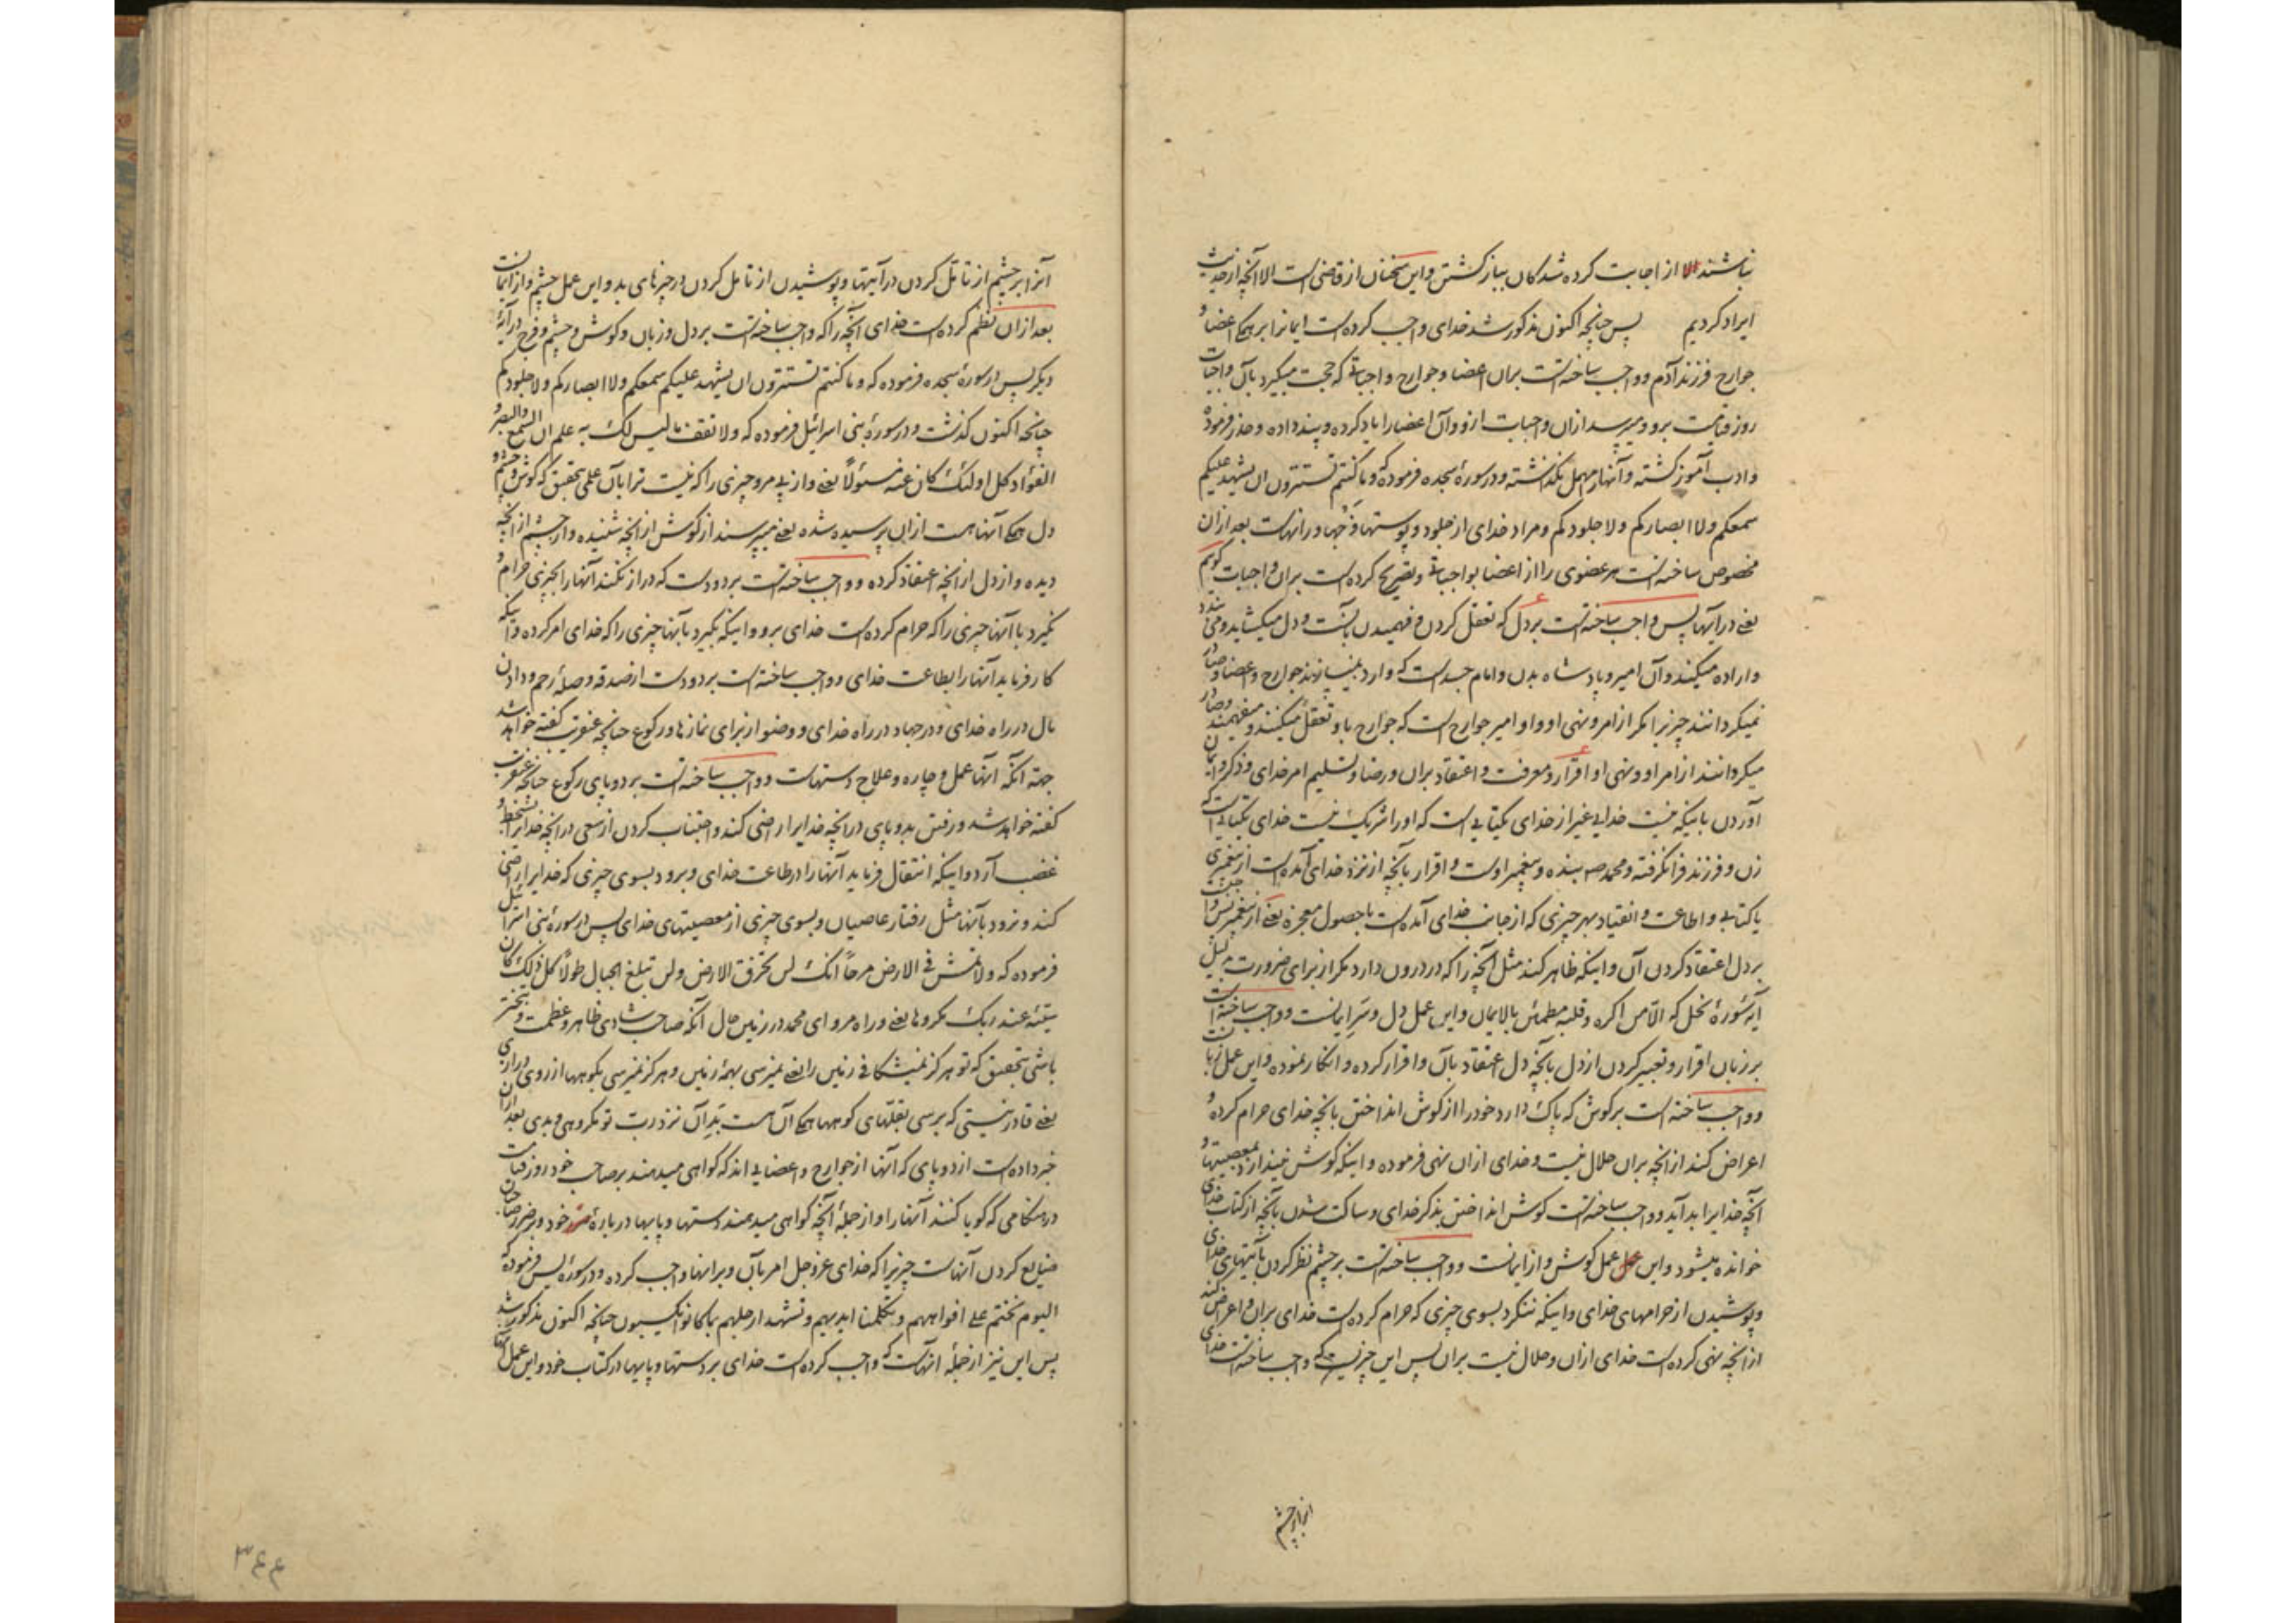 نباشند الا از اجابت کرده شدکان بباز کشتن و این سخنان از قاضی است الا آنچه از حدیث
ایراد کردیم پس چنانچه اکنون مذکور شد خدای واجب کرده است ایمانرا بر همکی اعضا و
جوارح فرزند آدم و واجب ساخته است بران اعضا و جوارح واجباتی که حجت میکیرد بآن واجبات
روز قیامت برو و میپرسد ازان واجبات ازو و آن اعضا را یاد کرده و پند داده و حذر فرموده
و ادب آموز کشته و آنهارا مهمل نکذاشته و در سورهٔ سجده فرموده که و ما کنتم تستترون ان یشهد علیکم
سمعکم ولا ابصارکم ولا جلودکم و مراد خدای از جلود و پوستها فرجها و رانهاست بعد ازان
مخصوص ساخته است هر عضوی را از اعضا بواجباتی و تصریح کرده است بران واجبات کویم
یعنی در آیتها پس واجب ساخته است بر دل که تعقل کردن و فهمیدن بآنست و دل میکشاید و می بندد
و اراده میکند و آن امیر و پادشاه بدن و امام جسد است که وارد نمیسازند جوارح و اعضا و صادر
نمیکردانند چیزیرا مکر از امر و نهی او و او امیر جوارح است که جوارح باو تعقل میکنند و میفهمند و صادر
میکردانند از امر او و نهی او اقرار و معرفت و اعتقاد بران و رضا و تسلیم امر خدای و ذکر و ایمان
آوردن باینکه نیست خدایی غیر از خدای یکتایی است که اورا شریک نیست خدای یکتایی است که
زن و فرزند فرا نکرفته و محمد صم بنده و پیغمبر اوست و اقرار بآنچه از نزد خدای آمده است از پیغمبری
یا کتابی و اطاعت و انقیاد بهر چیزی که از جانب خدای آمده است با حصول معجزه یعنی از پیغمبر پس واجبست
بر دل اعتقاد کردن آن و اینکه ظاهر کند مثل آنچه را که در درون دارد مکر از برای ضرورت بدلیل
آیه سورهٔ نحل که الا من اکره و قلبه مطمئن بالایمان و این عمل دل و سر ایمانست و واجب ساخته است
بر زبان اقرار و تعبیر کردن از دل بآنچه دل اعتقاد بآن و اقرار کرده و انکار ننموده و این عمل زبانست
و واجب ساخته است بر کوش که پاک دارد خود را از کوش انداختن بانچه خدای حرام کرده و
اعراض کند از آنچه بران حلال نیست و خدای ازان نهی فرموده و اینکه کوش نیندازد بمعصیتها و
آنچه خدایرا بد آید و واجب ساخته است کوش انداختن بذکر خدای و ساکت شدن بآنچه از کتاب خدای
خوانده میشود و این عمل عمل کوش و از ایمانست و واجب ساخته است بر چشم نظر کردن بآیتهای خدای
و پوشیدن از حرامهای خدای و اینکه ننکرد بسوی چیزی که حرام کرده است خدای بران و اعراض کند
از آنچه نهی کرده است خدای ازان و حلال نیست بران پس این چیزیست که واجب ساخته است خدای
آنرا بر چشم
آنرا بر چشم از تامل کردن در آیتها و پوشیدن از تامل کردن در چیزهای بد و این عمل چشم و از ایمانست
بعد ازان نظم کرده است خدای آنچه را که واجب ساخته است بر دل و زبان و کوش و چشم و فرج در آیهٔ
دیکر پس در سورهٔ سجده فرموده که و ما کنتم تستترون ان یشهد علیکم سمعکم ولا ابصارکم ولا جلودکم
چنانچه اکنون کذشت و در سورهٔ بنی اسرائیل فرموده که ولا تقف ما لیس لک به علم ان السمع والبصر و
الفؤاد کل اولئک کان عنه مسئولًا یعنی و از پی مرو چیزی را که نیست ترا بآن علمی بتحقیق که کوش و چشم و
دل همکی آنها هست ازان پرسیده شده یعنی میپرسند از کوش از آنچه شنیده و از چشم از آنچه
دیده و از دل از آنچه اعتقاد کرده و واجب ساخته است بر دو دست که دراز نکند آنهارا بچیزی حرام و
نکیرد باآنها چیزی را که حرام کرده است خدای برو و اینکه بکیرد بآنها چیزی را که خدای امر کرده و اینکه
کار فرماید آنهارا بطاعت خدای و واجب ساخته است بر دو دست از صدقه و صلهٔ رحم و دادن
مال در راه خدای و در جهاد در راه خدای و وضو از برای نمازها و رکوع چنانچه عنقریب کفته خواهد شد
جهة آنکه آنها عمل و چاره و علاج دستهاست و واجب ساخته است بر دو پای رکوع چنانکه عنقریب
کفته خواهد شد و رفتن بدو پای در آنچه خدایرا راضی کند و اجتناب کردن از سعی در آنچه خدایرا بسخط و
غضب آرد و اینکه انتقال فرماید آنهارا در طاعت خدای و برود بسوی چیزی که خدایرا راضی
کند و نرود بآنها مثل رفتار عاصیان و بسوی چیزی از معصیتهای خدای پس در سورهٔ بنی اسرائیل
فرموده که ولا تمش فی الارض مرحًا انک لن تخرق الارض ولن تبلغ الجبال طولًا کل ذلک کان
سیئه عند ربک مکروها یعنی و راه مرو ای محمد در زمین حال آنکه صاحب شادی ظاهر و عظمت و تبختر
باشی بتحقیق که تو هرکز نمیشکافی زمین را یعنی نمیرسی بهمهٔ زمین و هرکز نمیرسی بکوهها از روی درازی
یعنی قادر نیستی که برسی بقلهای کوهها همکی آن هست بد آن نزد رب تو مکروهی و بدی بعد ازان
خبر داده است از دو پای که آنها از جوارح و اعضایی اند که کواهی میدهند بر صاحب خود روز قیامت
در هنکامی که کویا کنند آنهارا و از جملهٔ آنچه کواهی میدهند دستها و پایها دربارهٔ ضرر خود و بر ضرر صاحبان
ضایع کردن آنهاست چیزیرا که خدای عز و جل امر بآن و برانها واجب کرده و در سورهٔ یس فرموده که
الیوم نختم علی افواههم و تکلمنا ایدیهم و تشهد ارجلهم بما کانوا یکسبون چنانچه اکنون مذکور شد
پس این نیز از جملهٔ آنهاست که واجب کرده است خدای بر دستها و پایها در کتاب خود و این عمل آنها
۳٤٤